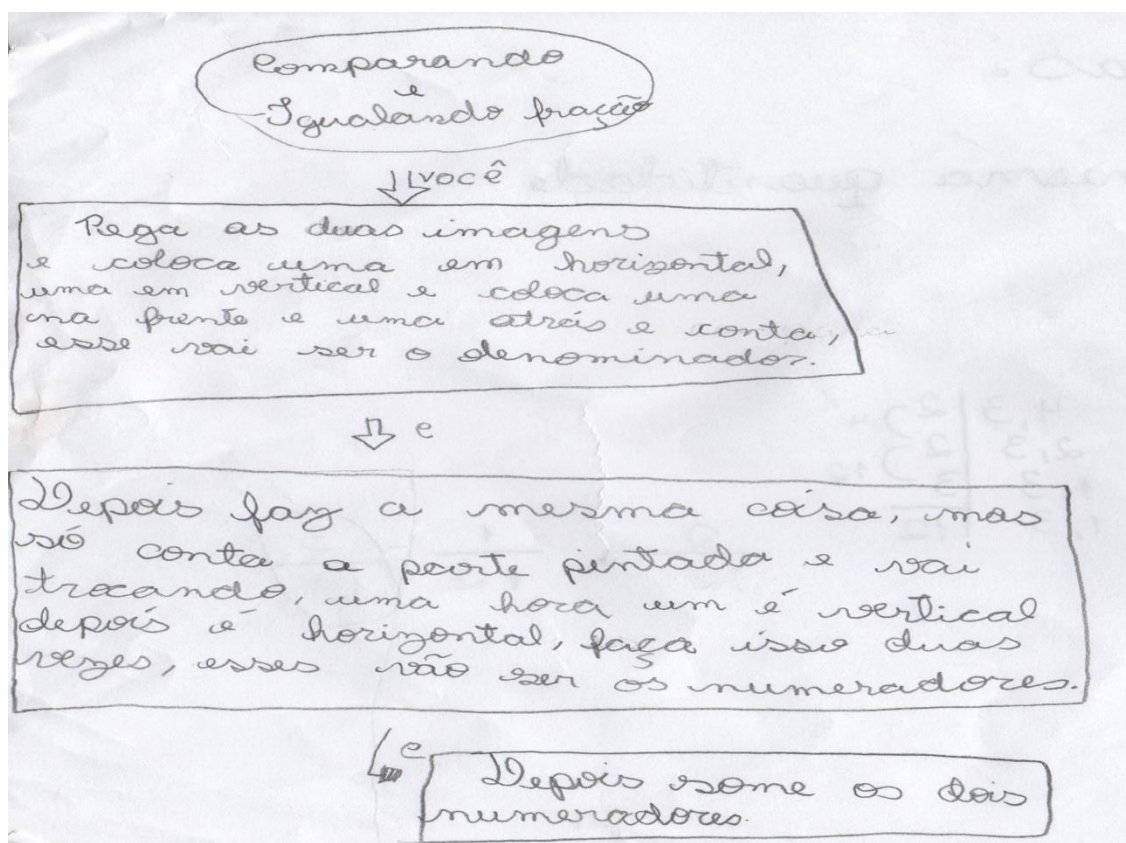 Comparando
e
Igualando fração
você
Pega as duas imagens
e coloca uma em horizontal,
uma em vertical e coloca uma
na frente e uma atrás e conta,
esse vai ser o denominador.
e
Depois faz a mesma coisa, mas
só conta a parte pintada e vai
trocando, uma hora um é vertical
depois é horizontal, faça isso duas
vezes, esses vão ser os numeradores.
e
Depois some os dois
numeradores.